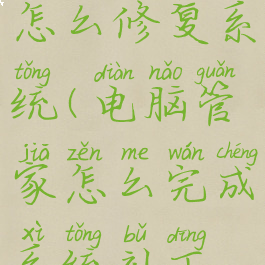 怎么修复系
tǒng diàn nǎo guǎn
统(电脑管
jiā zěn me wán chéng
家怎么完成
xì tǒng bǔ dīng
系统补丁